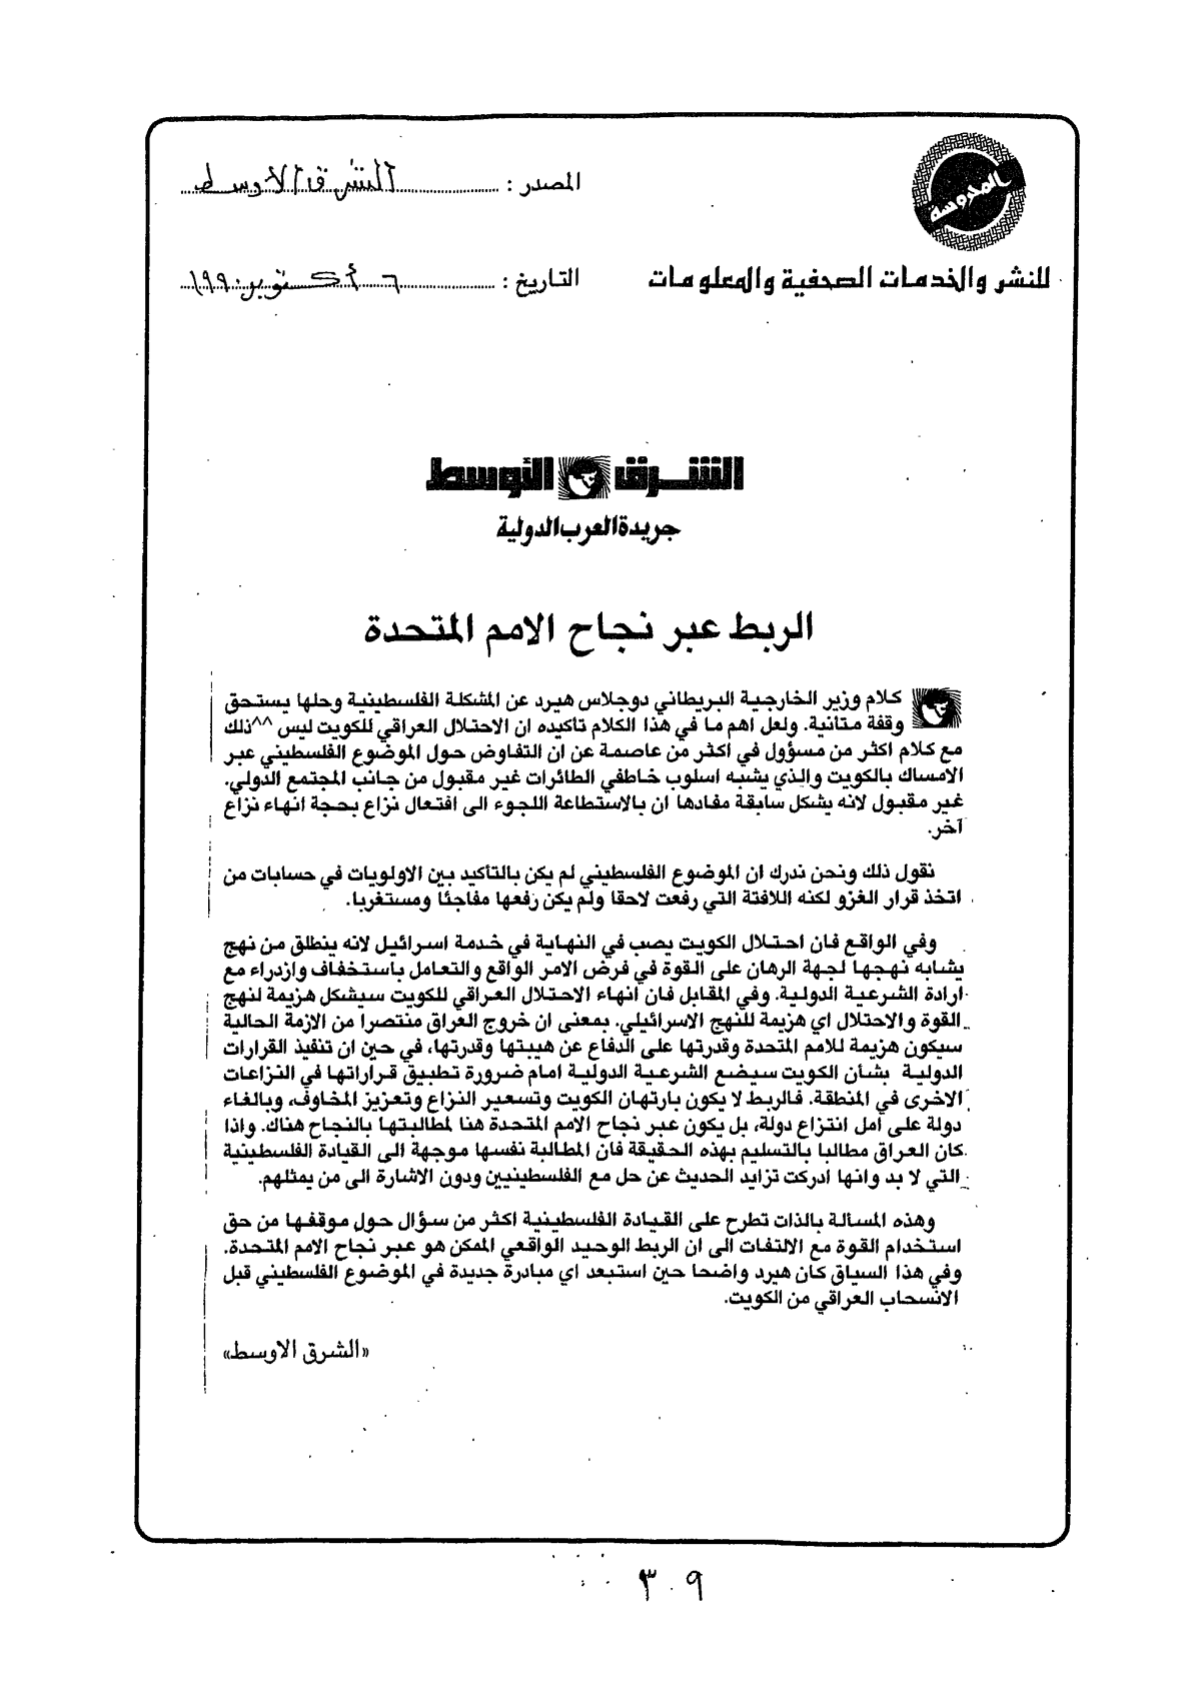 المحروسة
المصدر : الشرق الأوسط
للنشر والخدمات الصحفية والمعلومات
التاريخ : ٦ أكتوبر ١٩٩٠
الشرق الأوسط
جريدة العرب الدولية
الربط عبر نجاح الامم المتحدة
كلام وزير الخارجية البريطاني دوجلاس هيرد عن المشكلة الفلسطينية وحلها يستحق
وقفة متانية. ولعل اهم ما في هذا الكلام تاكيده ان الاحتلال العراقي للكويت ليس ^^ذلك
مع كلام اكثر من مسؤول في اكثر من عاصمة عن ان التفاوض حول الموضوع الفلسطيني عبر
الامساك بالكويت والذي يشبه اسلوب خاطفي الطائرات غير مقبول من جانب المجتمع الدولي.
غير مقبول لانه يشكل سابقة مفادها ان بالاستطاعة اللجوء الى افتعال نزاع بحجة انهاء نزاع
آخر.
نقول ذلك ونحن ندرك ان الموضوع الفلسطيني لم يكن بالتاكيد بين الاولويات في حسابات من
اتخذ قرار الغزو لكنه اللافتة التي رفعت لاحقا ولم يكن رفعها مفاجئا ومستغربا.
وفي الواقع فان احتلال الكويت يصب في النهاية في خدمة اسرائيل لانه ينطلق من نهج
يشابه نهجها لجهة الرهان على القوة في فرض الامر الواقع والتعامل باستخفاف وازدراء مع
ارادة الشرعية الدولية. وفي المقابل فان انهاء الاحتلال العراقي للكويت سيشكل هزيمة لنهج
القوة والاحتلال اي هزيمة للنهج الاسرائيلي. بمعنى ان خروج العراق منتصرا من الازمة الحالية
سيكون هزيمة للامم المتحدة وقدرتها على الدفاع عن هيبتها وقدرتها، في حين ان تنفيذ القرارات
الدولية بشان الكويت سيضع الشرعية الدولية امام ضرورة تطبيق قراراتها في النزاعات
الاخرى في المنطقة. فالربط لا يكون بارتهان الكويت وتسعير النزاع وتعزيز المخاوف، وبالغاء
دولة على امل انتزاع دولة، بل يكون عبر نجاح الامم المتحدة هنا لمطالبتها بالنجاح هناك. واذا
كان العراق مطالبا بالتسليم بهذه الحقيقة فان المطالبة نفسها موجهة الى القيادة الفلسطينية
التي لا بد وانها ادركت تزايد الحديث عن حل مع الفلسطينيين ودون الاشارة الى من يمثلهم.
وهذه المسالة بالذات تطرح على القيادة الفلسطينية اكثر من سؤال حول موقفها من حق
استخدام القوة مع الالتفات الى ان الربط الوحيد الواقعي الممكن هو عبر نجاح الامم المتحدة.
وفي هذا السياق كان هيرد واضحا حين استبعد اي مبادرة جديدة في الموضوع الفلسطيني قبل
الانسحاب العراقي من الكويت.
«الشرق الاوسط»
٣٠٩